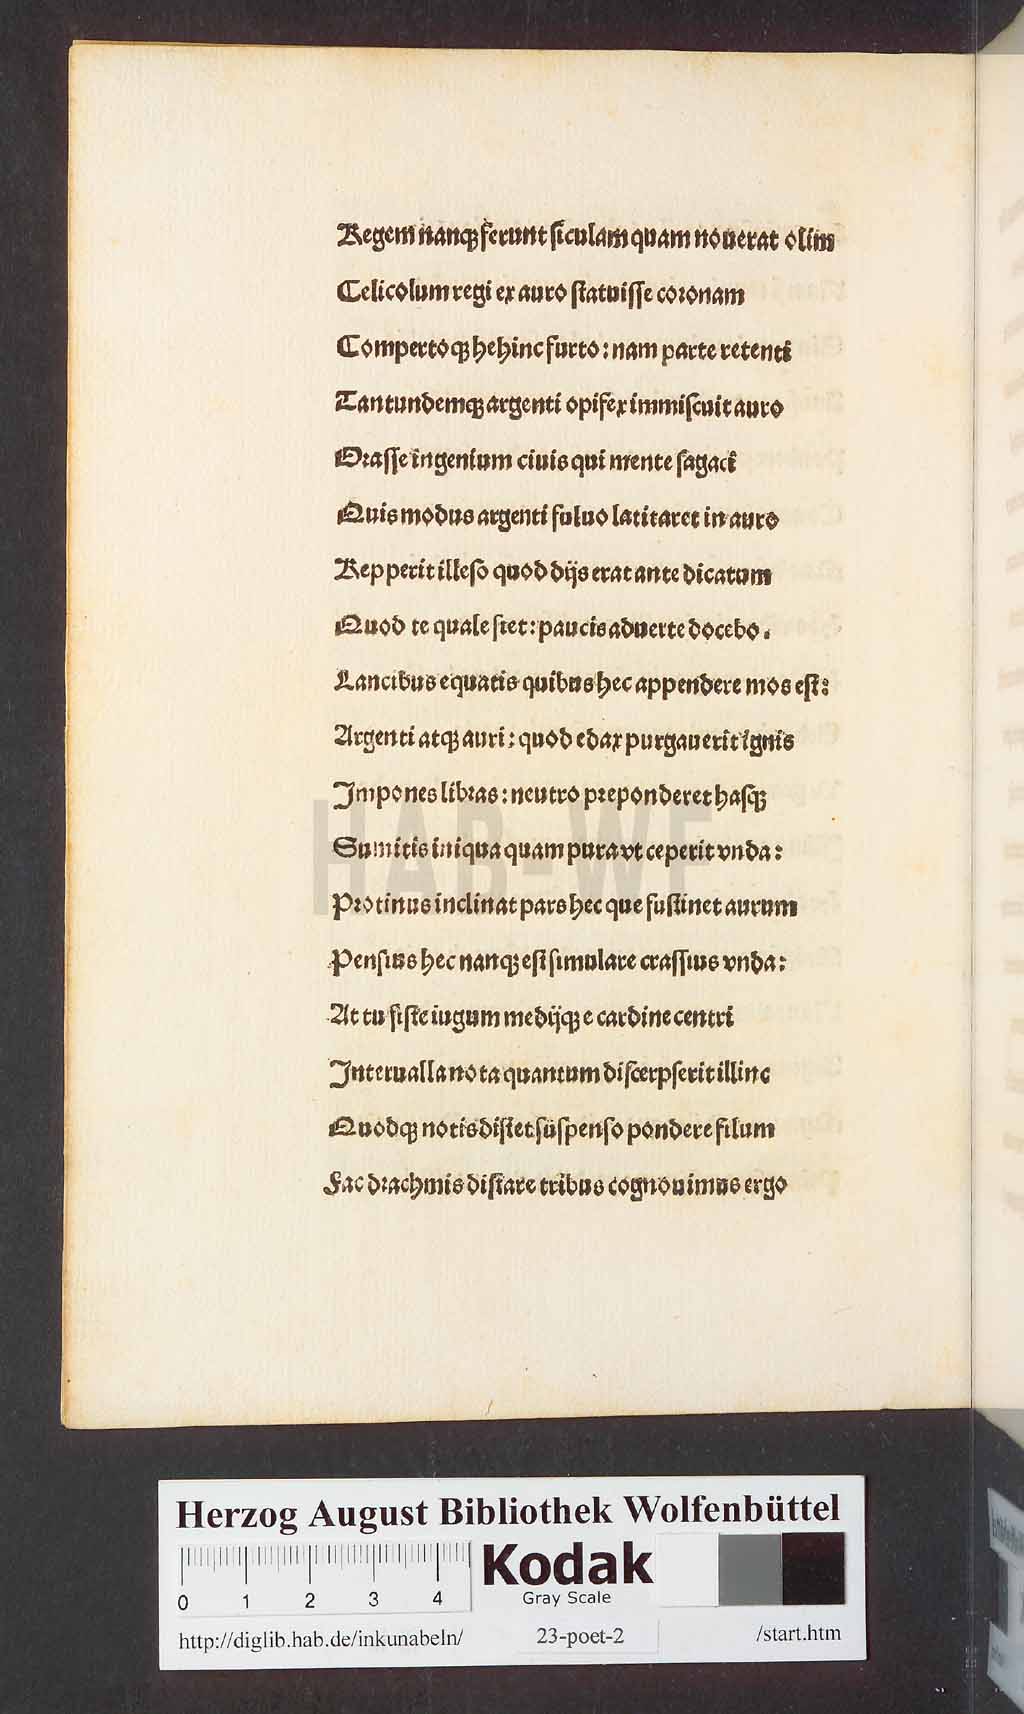 Regem nanqꝫ ferunt siculam quam nouerat olim
Celicolum regi ex auro statuisse coronam
Compertoqꝫ hehinc furto: nam parte retenti
Tantundemqꝫ argenti opifex immiscuit auro
Orasse ingenium ciuis qui mente sagaci
Quis modus argenti fuluo latitaret in auro
Repperit illeso quod dijs erat ante dicatum
Quod te quale siet: paucis aduerte docebo.
Lancibus equatis quibus hec appendere mos est:
Argenti atqꝫ auri: quod edax purgauerit ignis
Impones libras: neutro preponderet hasqꝫ
Sumitis iniqua quam pura vt ceperit vnda:
Protinus inclinat pars hec que sustinet aurum
Pensius hec nanqꝫ est simulare crassius vnda:
At tu siste iugum medijqꝫ e cardine centri
Interualla nota quantum discerpserit illinc
Quodqꝫ notis distet suspenso pondere filum
Fac drachmis distare tribus cognouimus ergo
HAB-WF
Herzog August Bibliothek Wolfenbüttel
Kodak
Gray Scale
0 1 2 3 4
http://diglib.hab.de/inkunabeln/ 23-poet-2 /start.htm